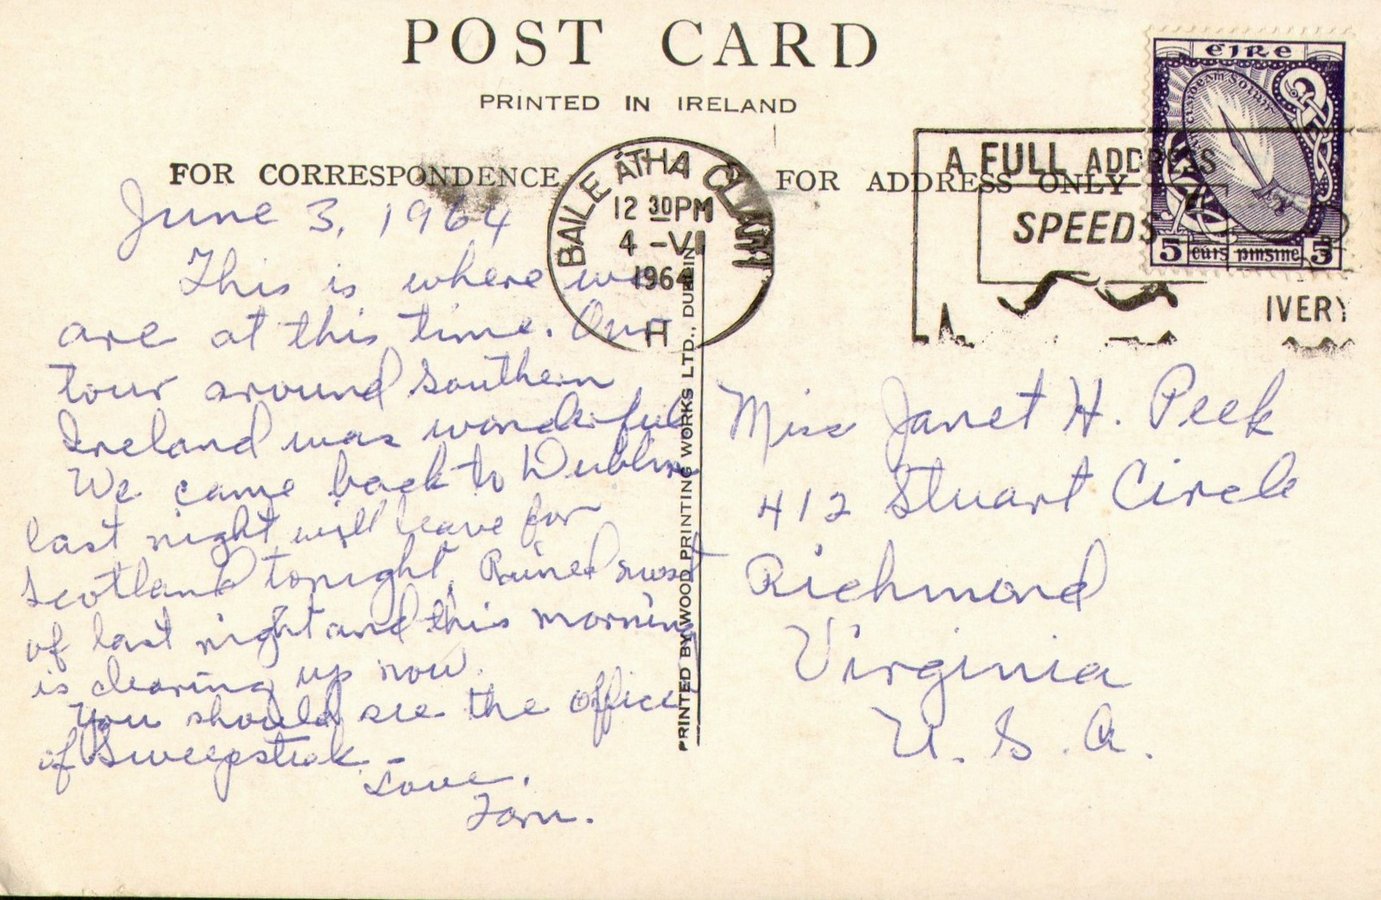 POST CARD
PRINTED IN IRELAND
FOR CORRESPONDENCE
FOR ADDRESS ONLY
éire
5 cúig pinsine 5
BAILE ÁTHA CLIATH
12 30PM
4 -VI
1964
H
A FULL ADDRESS
SPEEDS
IVERY
June 3, 1964
This is where we
are at this time. Our
tour around Southern
Ireland was wonderful
We came back to Dublin
last night will leave for
Scotland tonight. Rained most
of last night and this morning
is clearing up now.
You should see the office
of Sweepstak
Love,
PRINTED BY WOOD PRINTING WORKS LTD., DUBLIN
Miss Janet H. Peek
412 Stuart Circle
Richmond
Virginia
U. S. A.